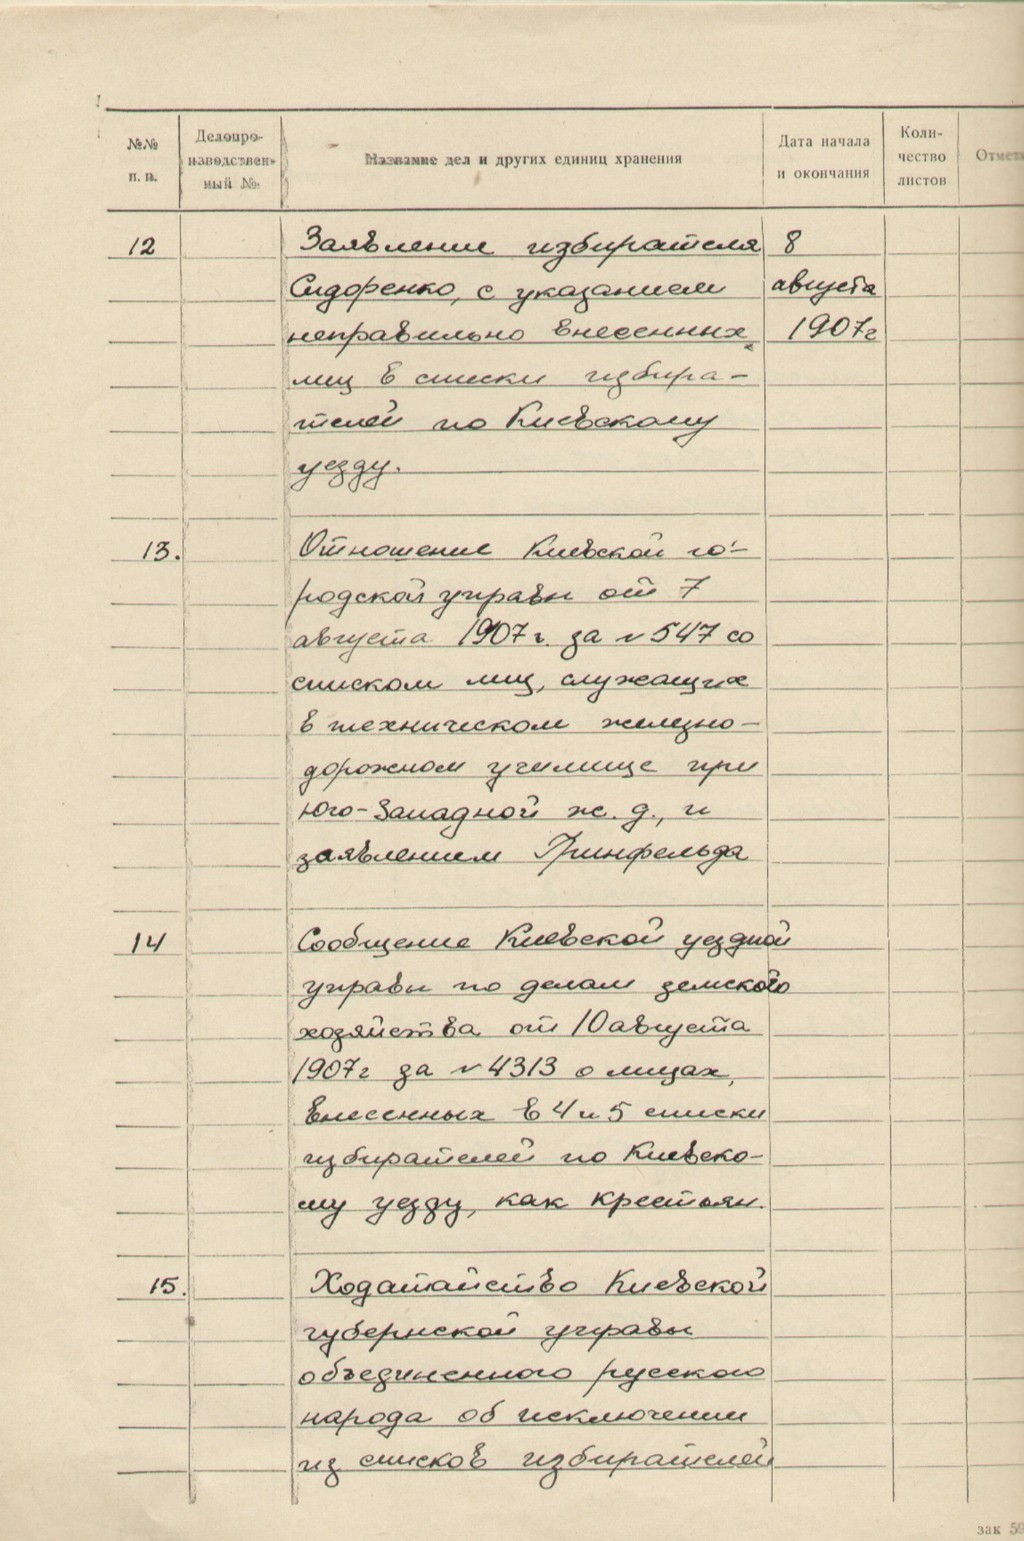 №№ п. п.
Делопроизводственный №
Название дел и других единиц хранения
Дата начала и окончания
Коли-
чество
листов
12 Заявление избирателя 8
Сидоренко, с указанием августа
неправильно внесенных 1907г
лиц в списки избира-
телей по Киевскому
уезду.
13. Отношение Киевской го-
родской управы от 7
августа 1907 г. за № 547 со
списком лиц, служащих
в техническом железно-
дорожном училище при
Юго-Западной ж. д., и
заявлением Гринфельда
14 Сообщение Киевской уездной
управы по делам земского
хозяйства от 10 августа
1907г за № 4313 о лицах,
внесенных в 4 и 5 списки
избирателей по Киевско-
му уезду, как крестьян.
15. Ходатайство Киевской
губернской управы
объединенного русского
народа об исключении
из списков избирателей
зак 59